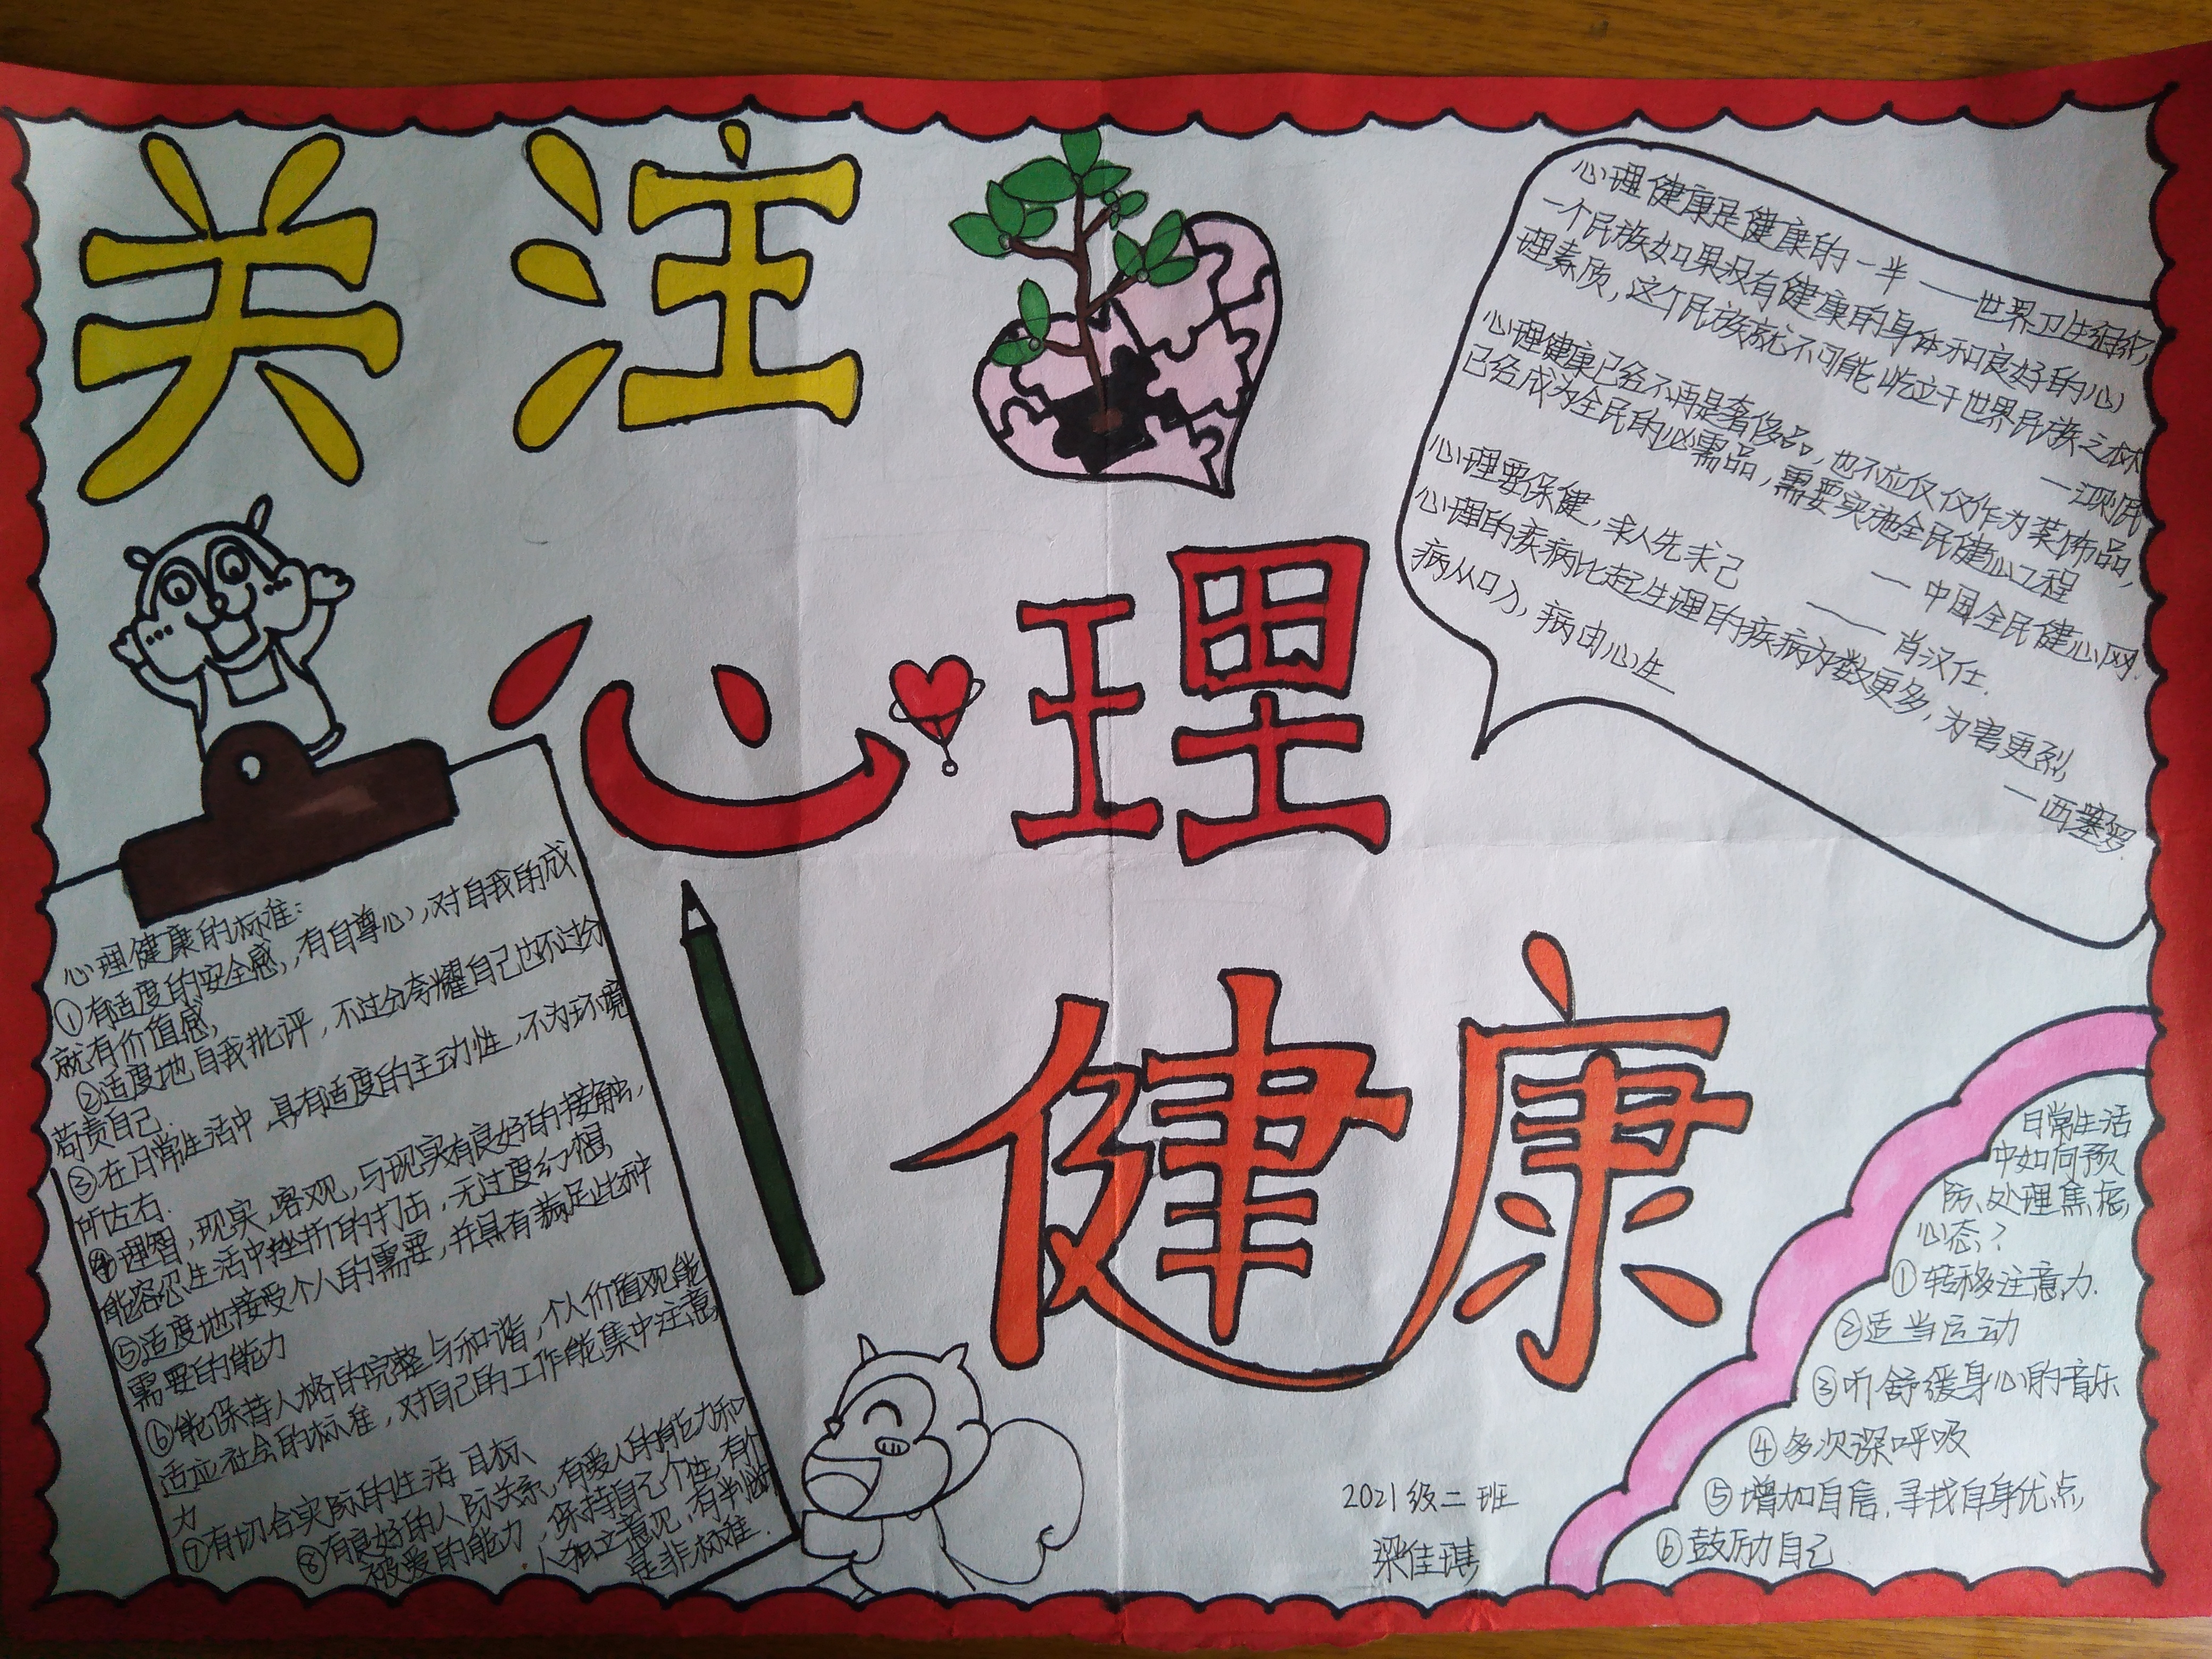 关注
心理
健康
心理健康是健康的一半 ——世界卫生组织
一个民族如果没有健康的身体和良好的心
理素质，这个民族就不可能屹立于世界民族之林
—江泽民
心理健康已经不再是奢侈品，也不应仅仅作为装饰品，
已经成为全民的必需品，需要实施全民健心工程
— 中国全民健心网.
心理要保健，求人先求己 —— 肖汉仕.
心理的疾病比起生理的疾病为数更多，为害更烈，
病从口入，病由心生
—西塞罗
心理健康的标准：
①有适度的安全感，有自尊心，对自我的成
就有价值感，
②适度地自我批评，不过分夸耀自己也不过分
苟责自己.
③在日常生活中，具有适度的主动性，不为环境
所左右.
④理智，现实，客观，与现实有良好的接触，
能容忍生活中挫折的打击，无过度幻想，
⑤适度地接受个人的需要，并具有满足此种
需要的能力
⑥能保持人格的完整与和谐，个人价值观能
适应社会的标准，对自己的工作能集中注意
力
⑦有切合实际的生活目标、
⑧有良好的人际关系，有爱人的能力和
被爱的能力，保持自己个性，有个
人独立意见，有判断
是非标准.
日常生活
中如何预
防、处理焦虑
心态？
①转移注意力.
②适当运动
③听舒缓身心的音乐
④多次深呼吸
⑤增加自信，寻找自身优点，
⑥鼓励自己
2021级二班
梁佳琪